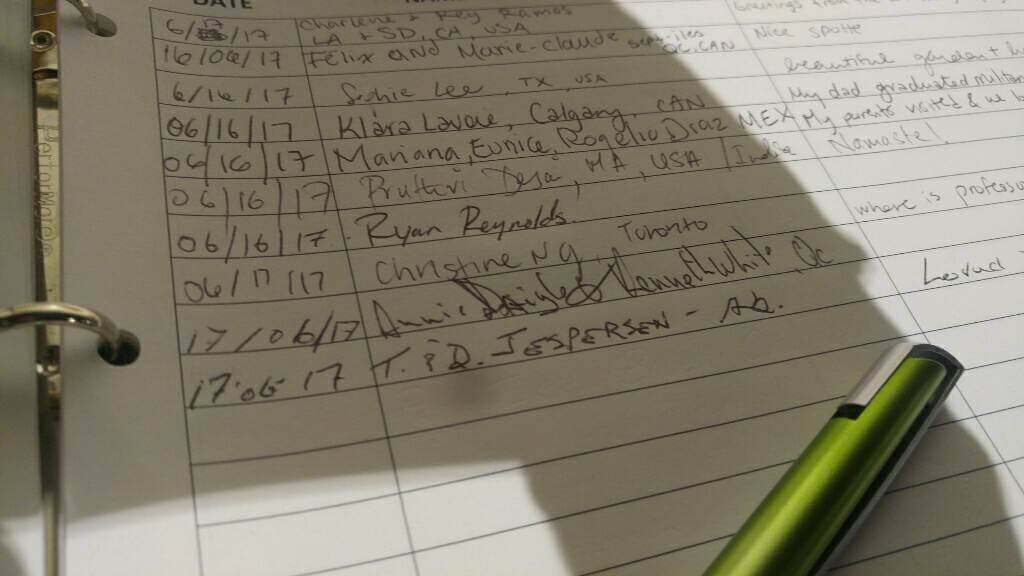 DATE
6/ /17 Charlene + Rey Ramos Greetings from the
LA + SD, CA, USA
16/06/17 Felix and Marie-claude QC, CAN Nice
6/16/17 Sophie Lee, TX, USA beautiful garden +
06/16/17 Klára Lavoie, Calgary, CAN My dad graduated
06/16/17 Mariana, Eunice, Rogelio Diaz MEX My parents visited & we
06/16/17 Pruthvi Desai, MA, USA / India Namaste!
06/16/17 Ryan Reynolds. where is
06/17/17 Christine Ng, Toronto
17/06/17 Annie Daigle & Kenneth White, Qc Loved
17·06·17 T. & D. JESPERSEN - AB.